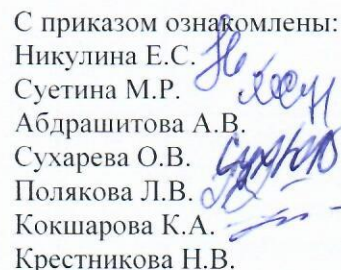 С приказом ознакомлены:
Никулина Е.С.
Суетина М.Р.
Абдрашитова А.В.
Сухарева О.В.
Полякова Л.В.
Кокшарова К.А.
Крестникова Н.В.